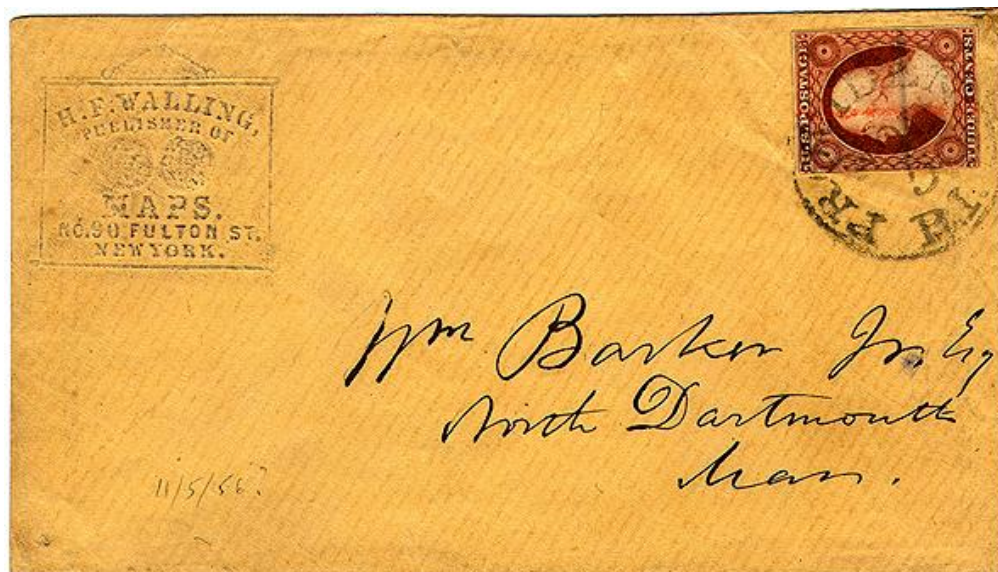 H. F. WALLING,
PUBLISHER OF
MAPS.
No. 90 FULTON ST.
NEW YORK.
U.S. POSTAGE
THREE CENTS
Wm Barker Jr. Esq
North Dartmouth
Mass.
11/5/56?